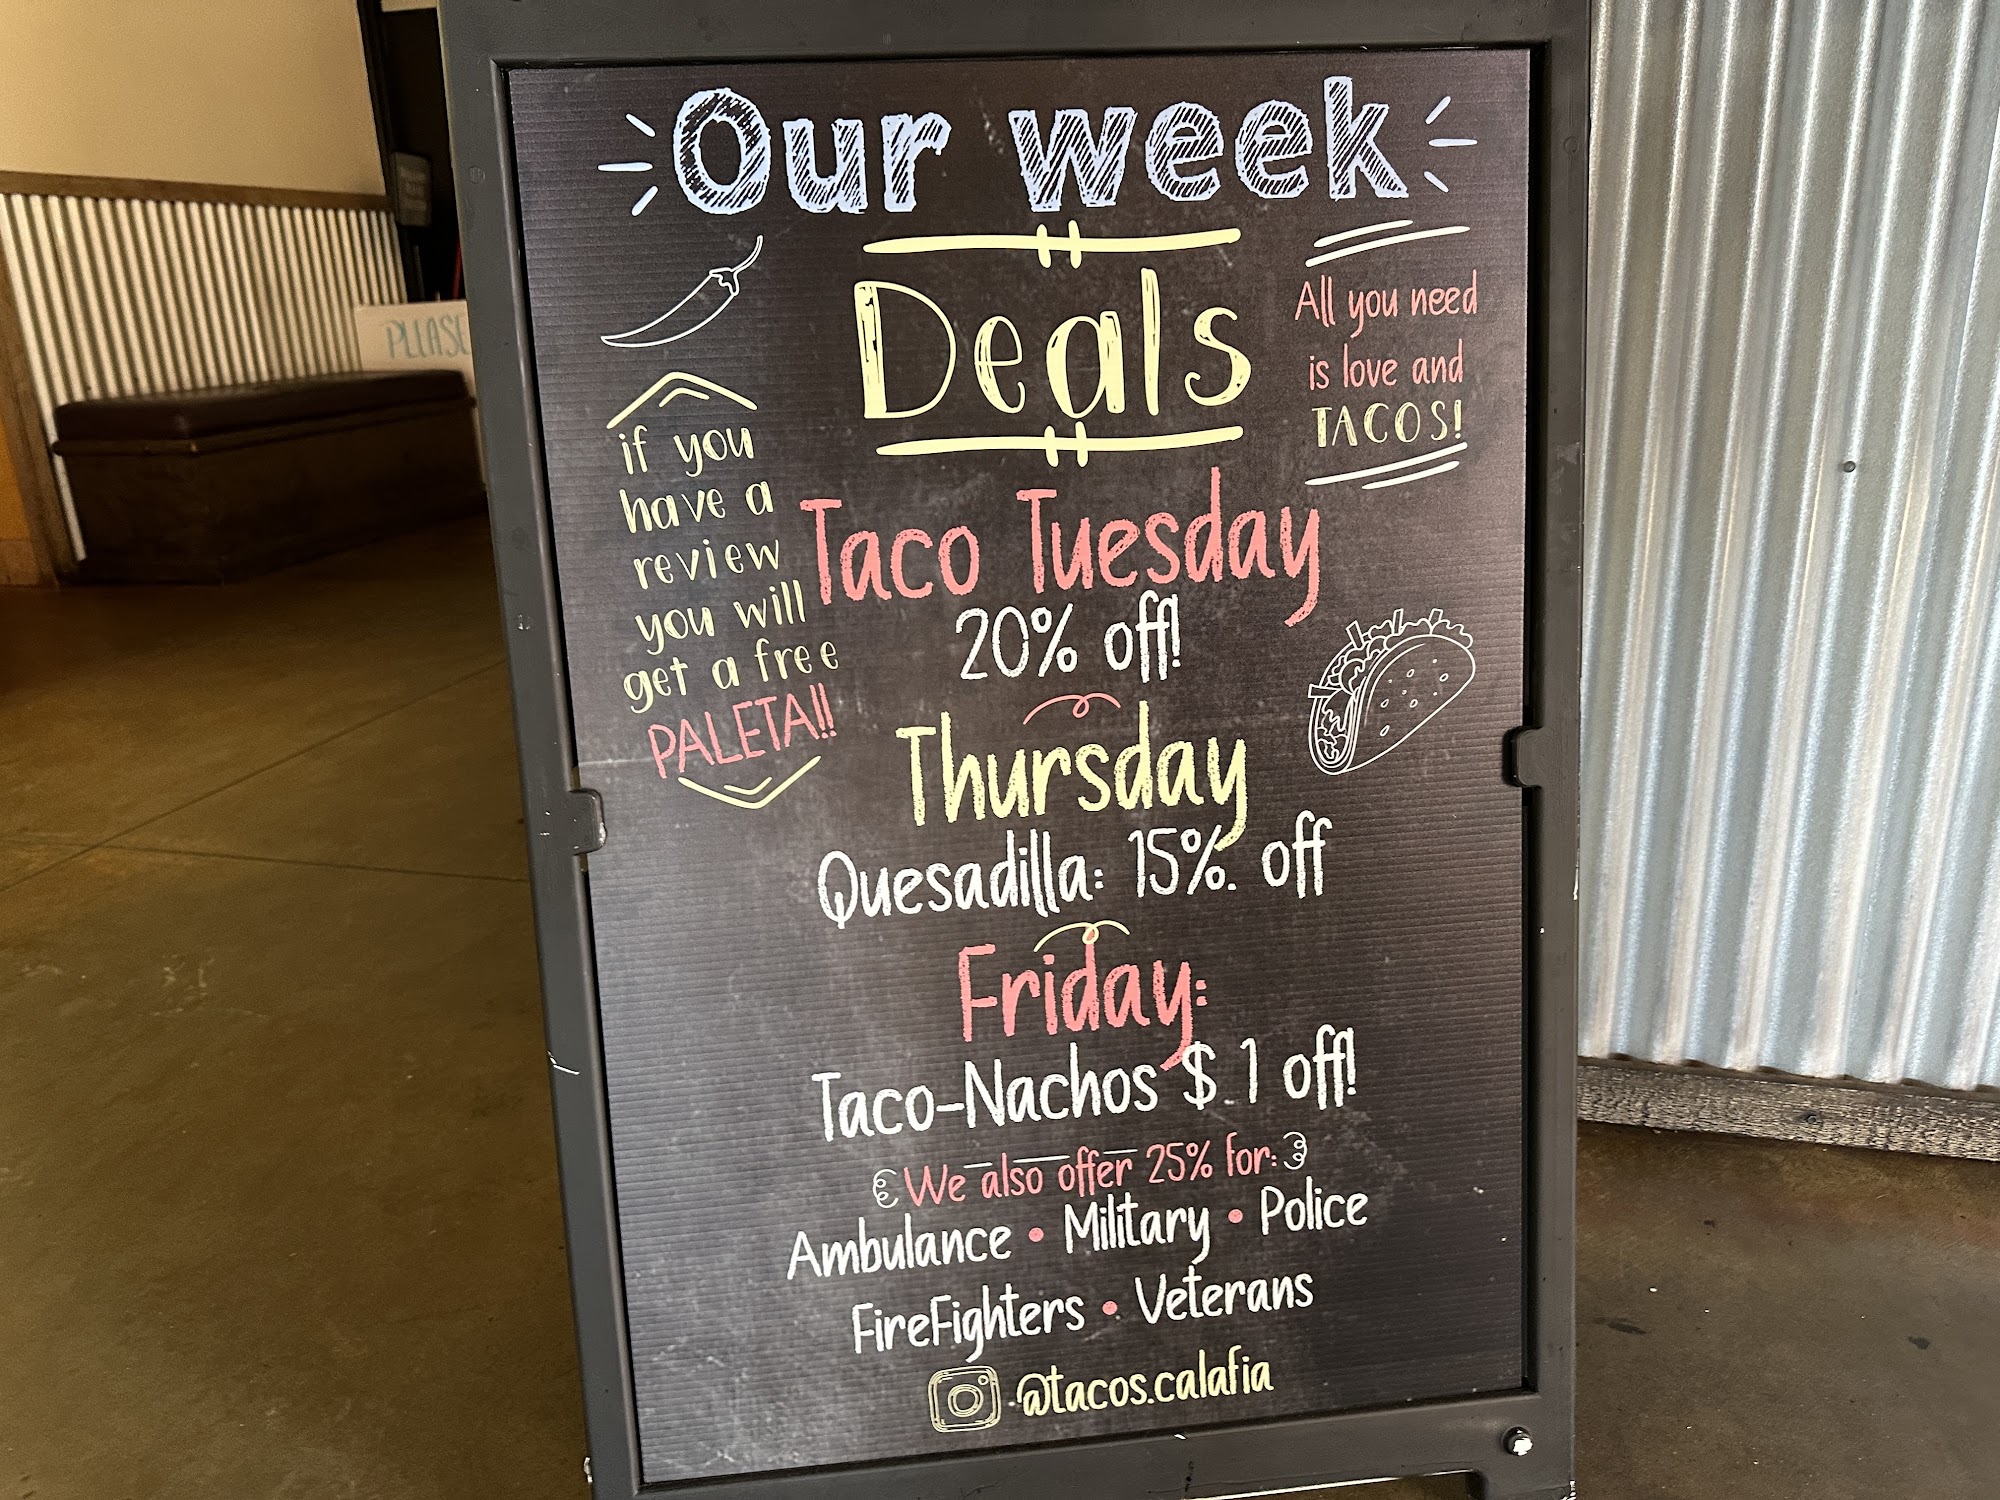 Our week
Deals
All you need
is love and
TACOS!
if you
have a
review
you will
get a free
PALETA!!
Taco Tuesday
20% off!
Thursday
Quesadilla: 15%. off
Friday:
Taco-Nachos $ 1 off!
We also offer 25% for:
Ambulance • Military • Police
FireFighters • Veterans
@tacos.calafia
PLEASE